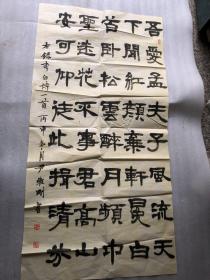 吾愛孟夫子風流天
下聞紅顏棄軒冕白
首卧松雲醉月頻中
聖迷花不事君高山
安可仰徒此揖清芬
右錄李白詩一首丙申冬月